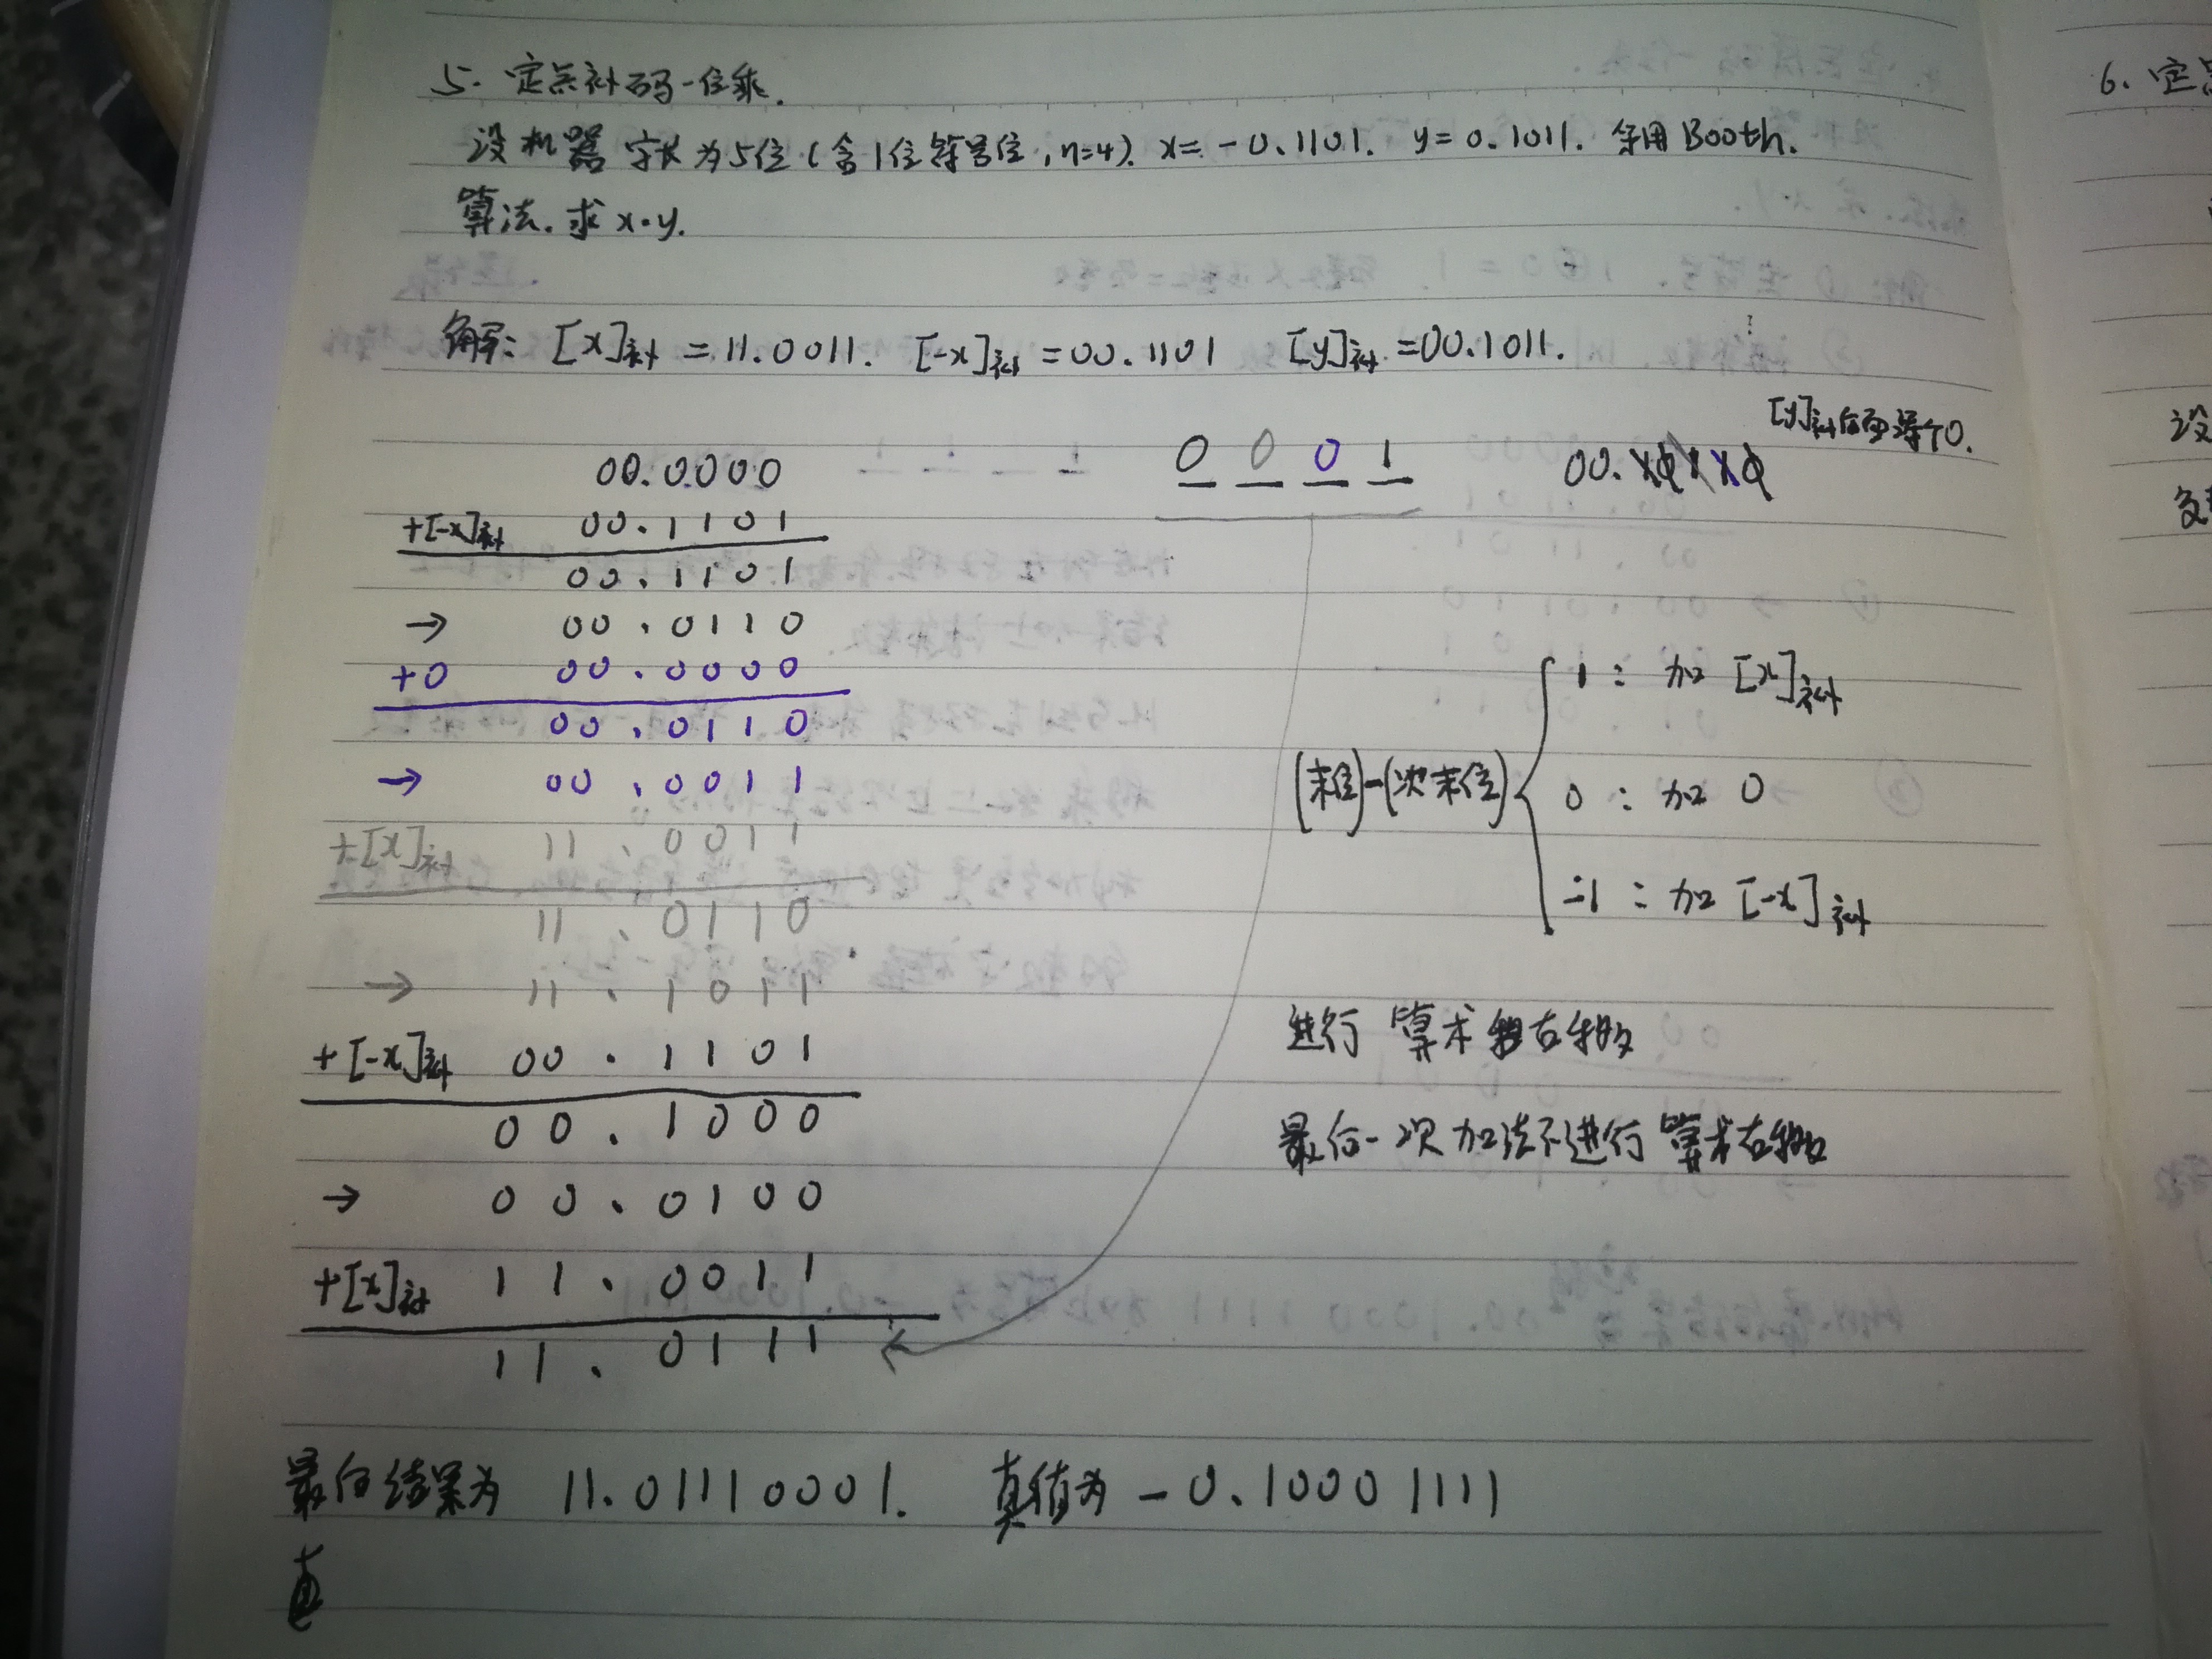 5. 定点补码一位乘.
设机器字长为5位(含1位符号位,n=4). x=-0.1101. y=0.1011. 采用Booth.
算法.求x·y.
解: [x]补=11.0011. [-x]补=00.1101 [y]补=00.1011.
[y]补后面添个0.
00.0000 0 0 0 1 00.
+[-x]补 00.1101
00.1101
→ 00.0110
+0 00.0000
00.0110
→ 00.0011
+[x]补 11.0011
11.0110
→ 11.1011
+[-x]补 00.1101
00.1000
→ 00.0100
+[x]补 11.0011
11.0111
(末位)-(次末位)
1: 加[x]补
0: 加0
-1: 加[-x]补
进行算术右移
最后一次加法不进行算术右移
最后结果为 11.01110001. 真值为 -0.10001111
真
6. 定
设